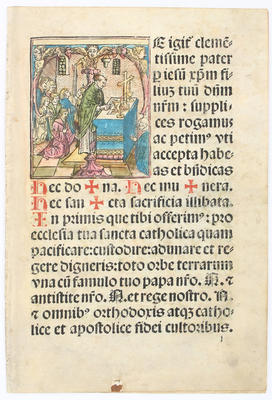 E igit᷑ clemē-
tissime pater
ꝑ iesū xp̄m fi
liuꝫ tuū dn̄m
nr̄m : suppli-
ces rogamus
ac petim⁹ vti
accepta habe-
as et bn̄dicas
Hec do ✠ na. Hec mu ✠ nera.
Hec san ✠ cta sacrificia illibata.
In primis que tibi offerim⁹: pro
ecclesia tua sancta catholica quam
pacificare: custodire: adunare et re-
gere digneris: toto orbe terrarum
vna cū famulo tuo papa nr̄o. N. et
antistite nr̄o. N. et rege nostro. N.
et omnib⁹ orthodoxis atqꝫ catho-
lice et apostolice fidei cultoribus.